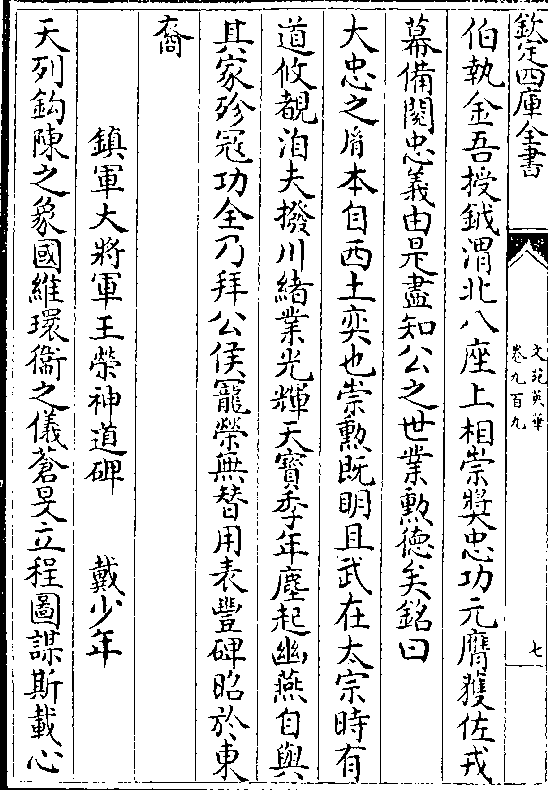 欽定四庫全書
文苑英華
卷九百九
七
伯執金吾授鉞渭北八座上相崇奬忠功元膺獲佐戎
幕備閱忠義由是盡知公之世業勲德矣銘曰
大忠之㣧本自西土奕也崇勲既明且武在太宗時有
道攸覩洎夫撥川緒業光輝天寶季年塵起幽燕自輿
其家殄冦功全乃拜公侯寵榮無替用表豐碑昭於東
裔
鎮軍大將軍王榮神道碑 戴少平
天列鈎陳之象國維環衞之儀蒼旻立程圖謀斯載心